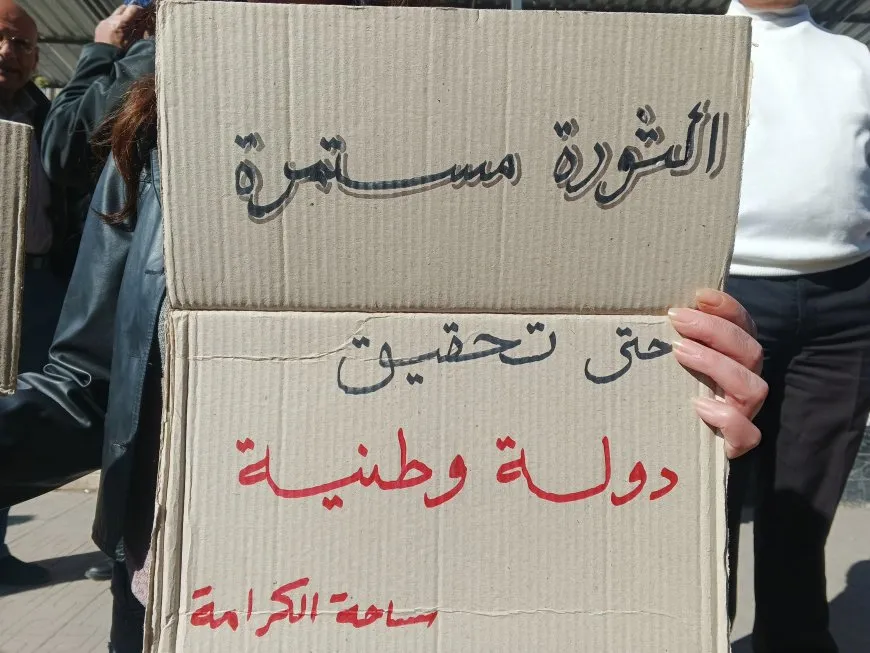 الثورة مستمرة
حتى تحقيق
دولة وطنية
ساحة الكرامة